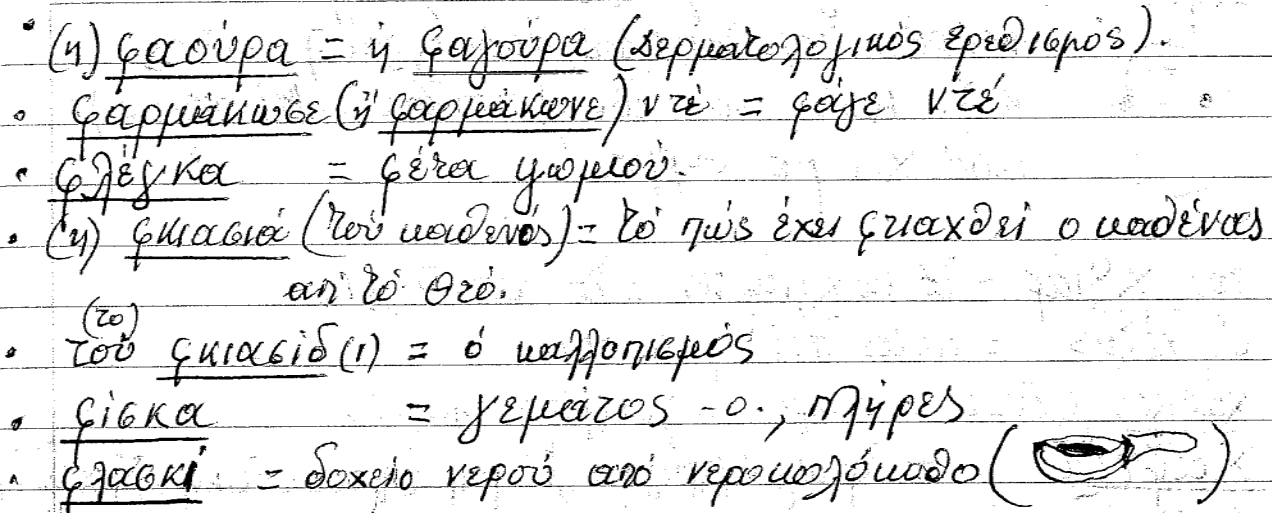 • (η) φαούρα = ἡ φαγούρα (δερματολογικός ερεθισμός).
• φαρμάκωσε (ἤ φαρμάκωνε) ντέ = φάγε ντέ
• φλέγκα = φέτα ψωμιού.
• (η) φκιασιά (τού καθενός) = τό πώς έχει φτιαχθεί ο καθένας
απ' τό Θεό.
(το)
• τού φκιασίδ(ι) = ὁ καλλοπισμός
• φίσκα = γεμάτος -ο., πλήρες
• φλασκί = δοχείο νερού από νεροκολόκυθο ( )